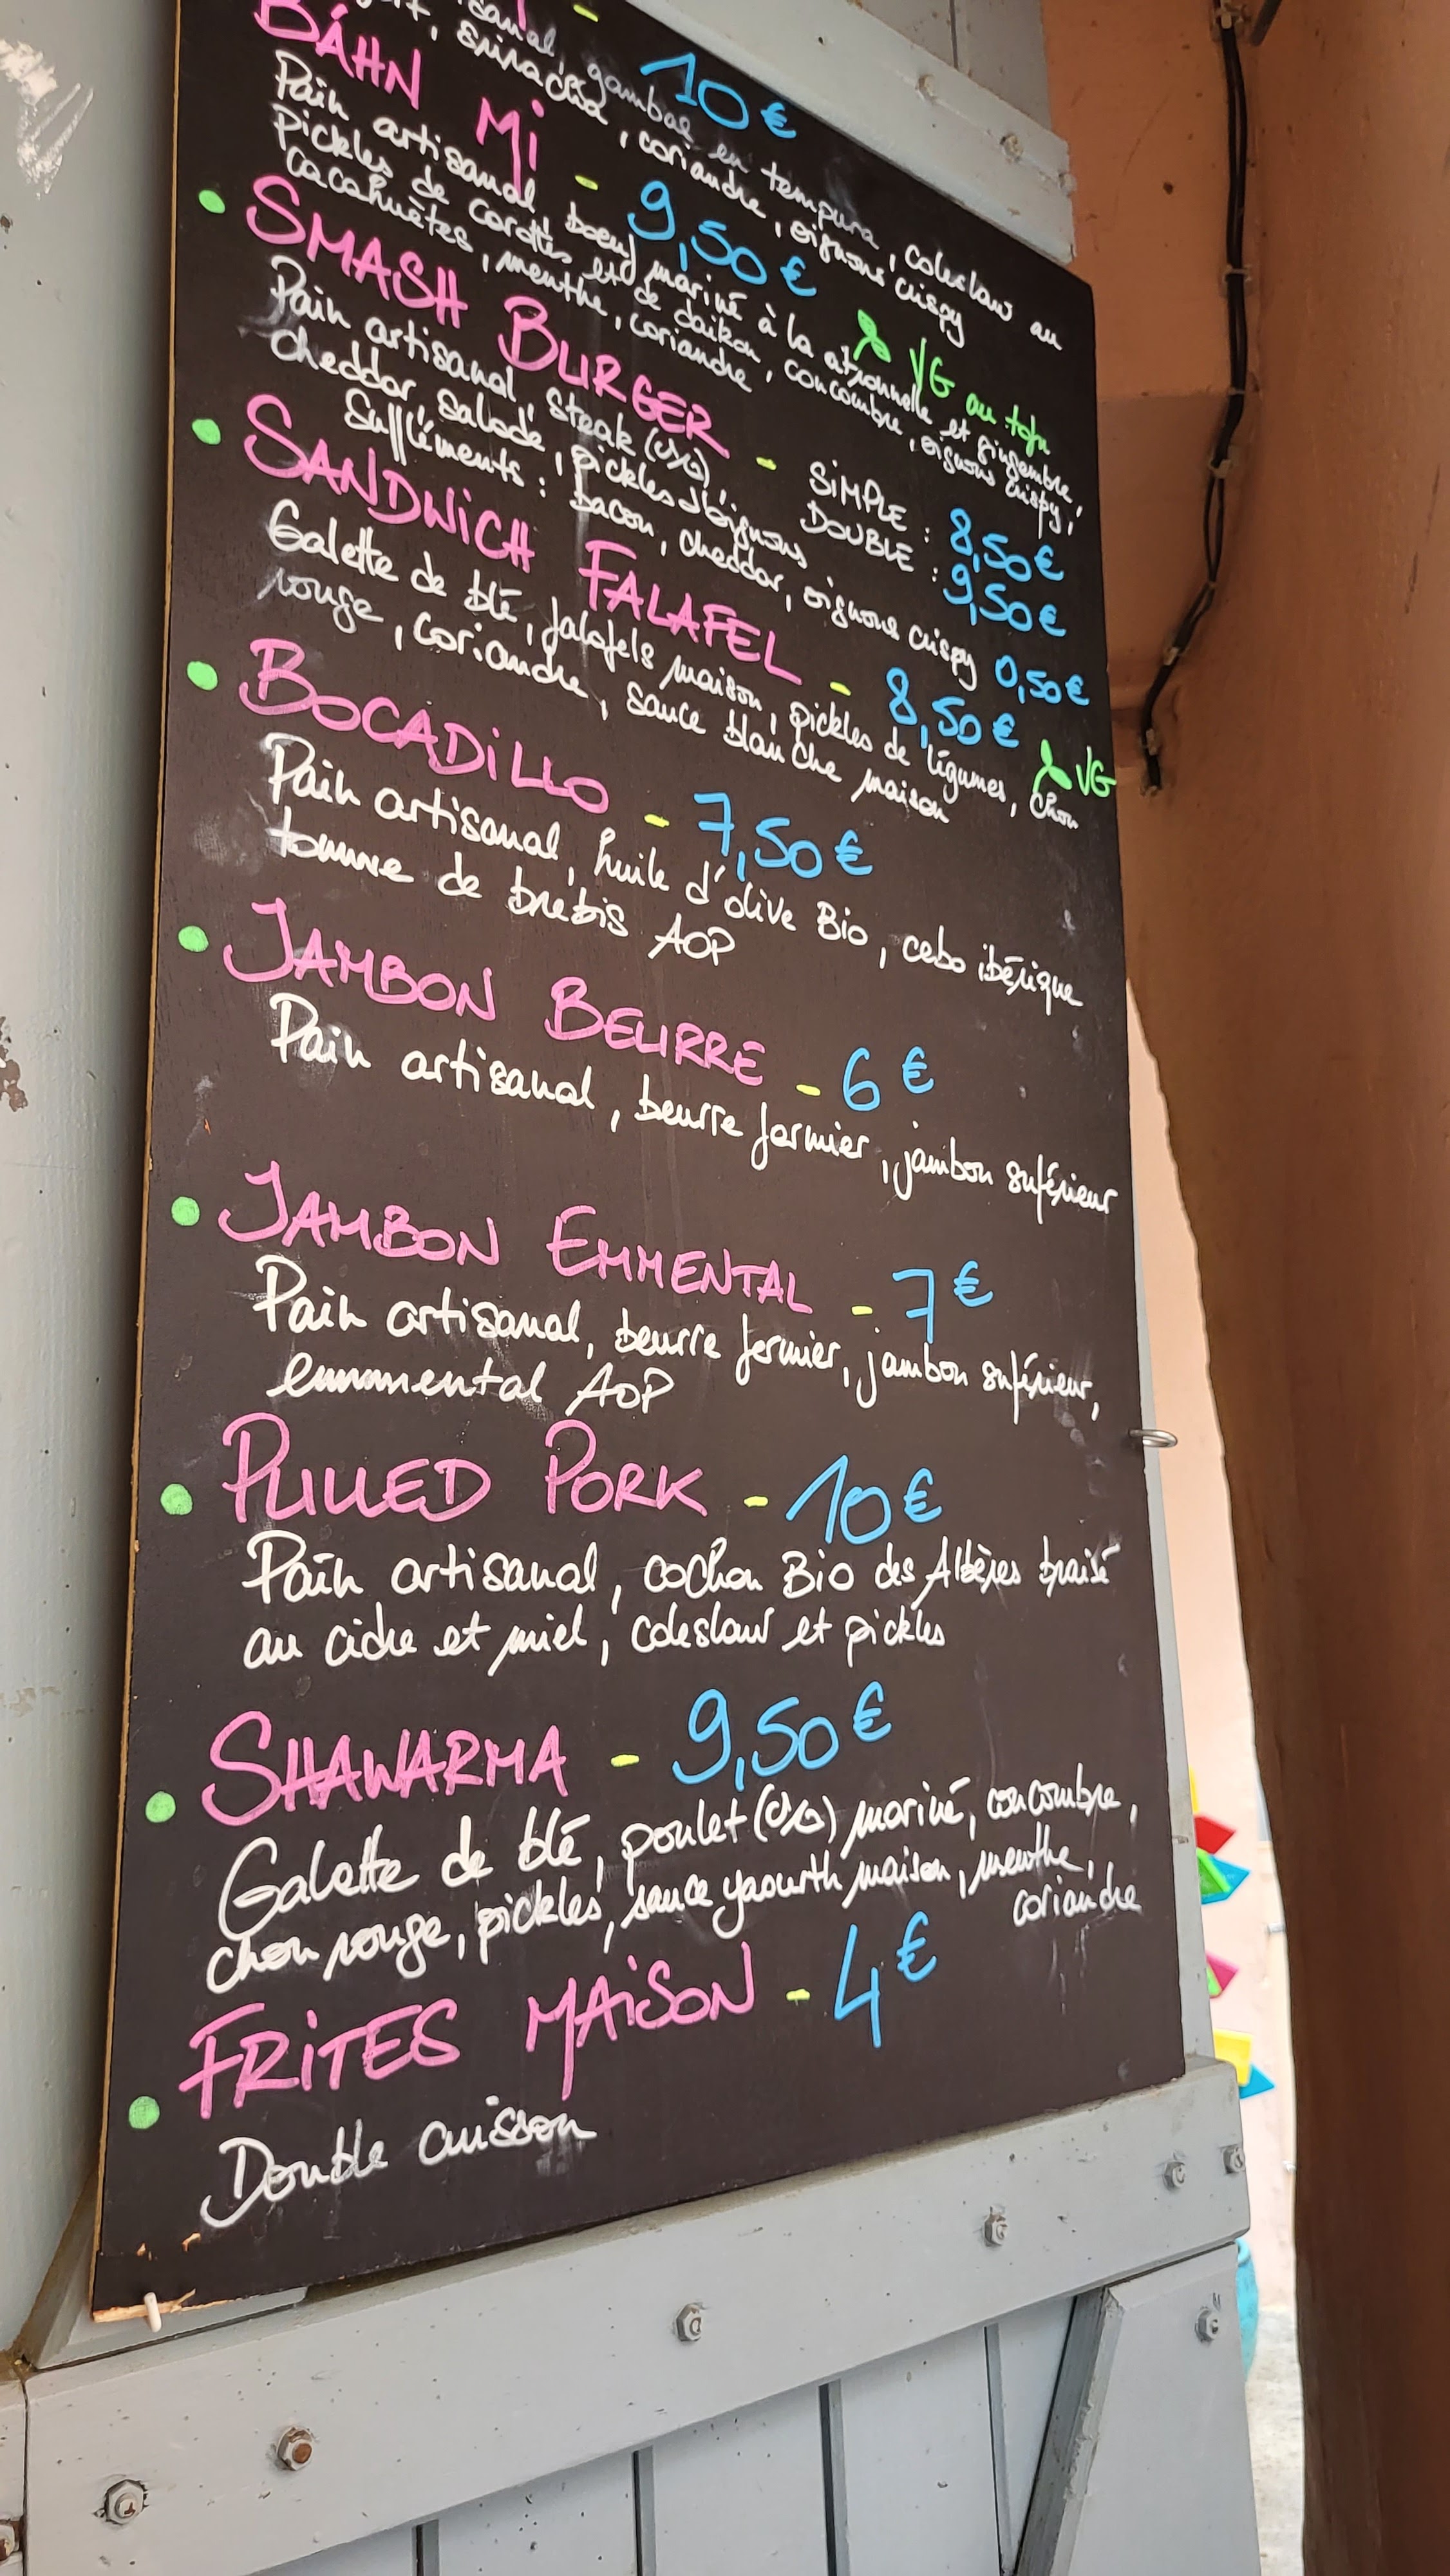 10€
gambas en tempura, coleslaw au
, sriracha, coriandre, oignons crispy
BÁHN MI - 9,50€ VG au tofu
Pain artisanal, boeuf mariné à la citronnelle et gingembre,
pickles de carottes et de daikon, concombre, oignons crispy,
cacahuètes, menthe, coriandre
SMASH BURGER - SIMPLE : 8,50€
DOUBLE : 9,50€
Pain artisanal, steak
cheddar, salade, pickles d'oignons
Suppléments : bacon, cheddar, oignons crispy 0,50€
SANDWICH FALAFEL - 8,50€ VG
Galette de blé, falafels maison, pickles de légumes, chou
rouge, coriandre, sauce blanche maison
BOCADILLO - 7,50€
Pain artisanal, huile d'olive Bio, cebo ibérique
tomme de brebis AOP
JAMBON BEURRE - 6€
Pain artisanal, beurre fermier, jambon supérieur
JAMBON EMMENTAL - 7€
Pain artisanal, beurre fermier, jambon supérieur,
emmmental AOP
PULLED PORK - 10€
Pain artisanal, cochon Bio des Albères braisé
au cidre et miel, coleslaw et pickles
SHAWARMA - 9,50€
Galette de blé, poulet mariné, concombre,
chou rouge, pickles, sauce yaourth maison, menthe,
coriandre
FRITES MAISON - 4€
Double cuisson